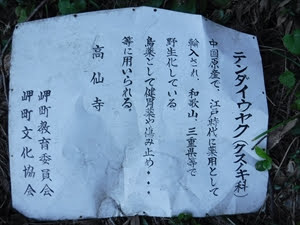 テンダイウヤク(クスノキ科)
中国原産で、江戸時代に薬用として
輸入され、和歌山、三重県等で
野生化している。
烏薬として健胃薬や傷み止め・・・
等に用いられる。
高仙寺
岬町教育委員会
岬町文化協会